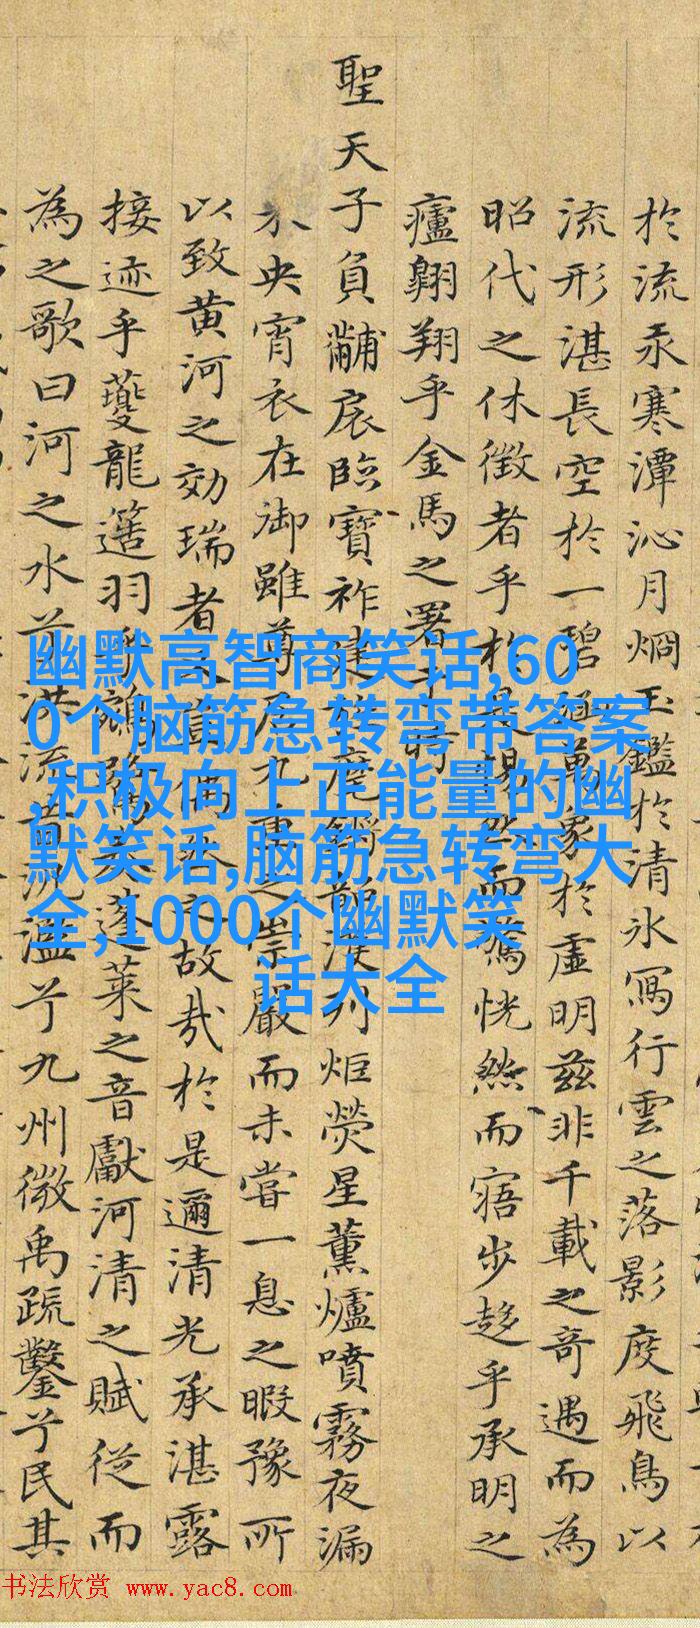 於流汞寒潭沁月烱玉鑑於清氷寫行雲之落影度飛鳥以
流形湛長空於一碧萬象於虛明茲非千載之奇遇而為
昭代之休徵者乎於是惕然而驚恍然而寤步趍乎承明之
廬翱翔乎金馬之署
聖天子負黼扆臨寶祚建列炬熒星薰爐噴霧夜漏
未央宵衣在御雖尊居九重之崇嚴而未嘗一息之暇豫所
以致黄河之効瑞者豈偶然之故哉於是邇清光承湛露
接迹乎夔龍簉羽乎鵷鷺蓬萊之音獻河清之賦從而
為之歌曰河之水兮洪流兮九州微禹疏鑿兮民其
幽默高智商笑话,60
0个脑筋急转弯带答案
,积极向上正能量的幽
默笑话,脑筋急转弯大
全,1000个幽默笑
话大全
书法欣赏 www.yac8.com